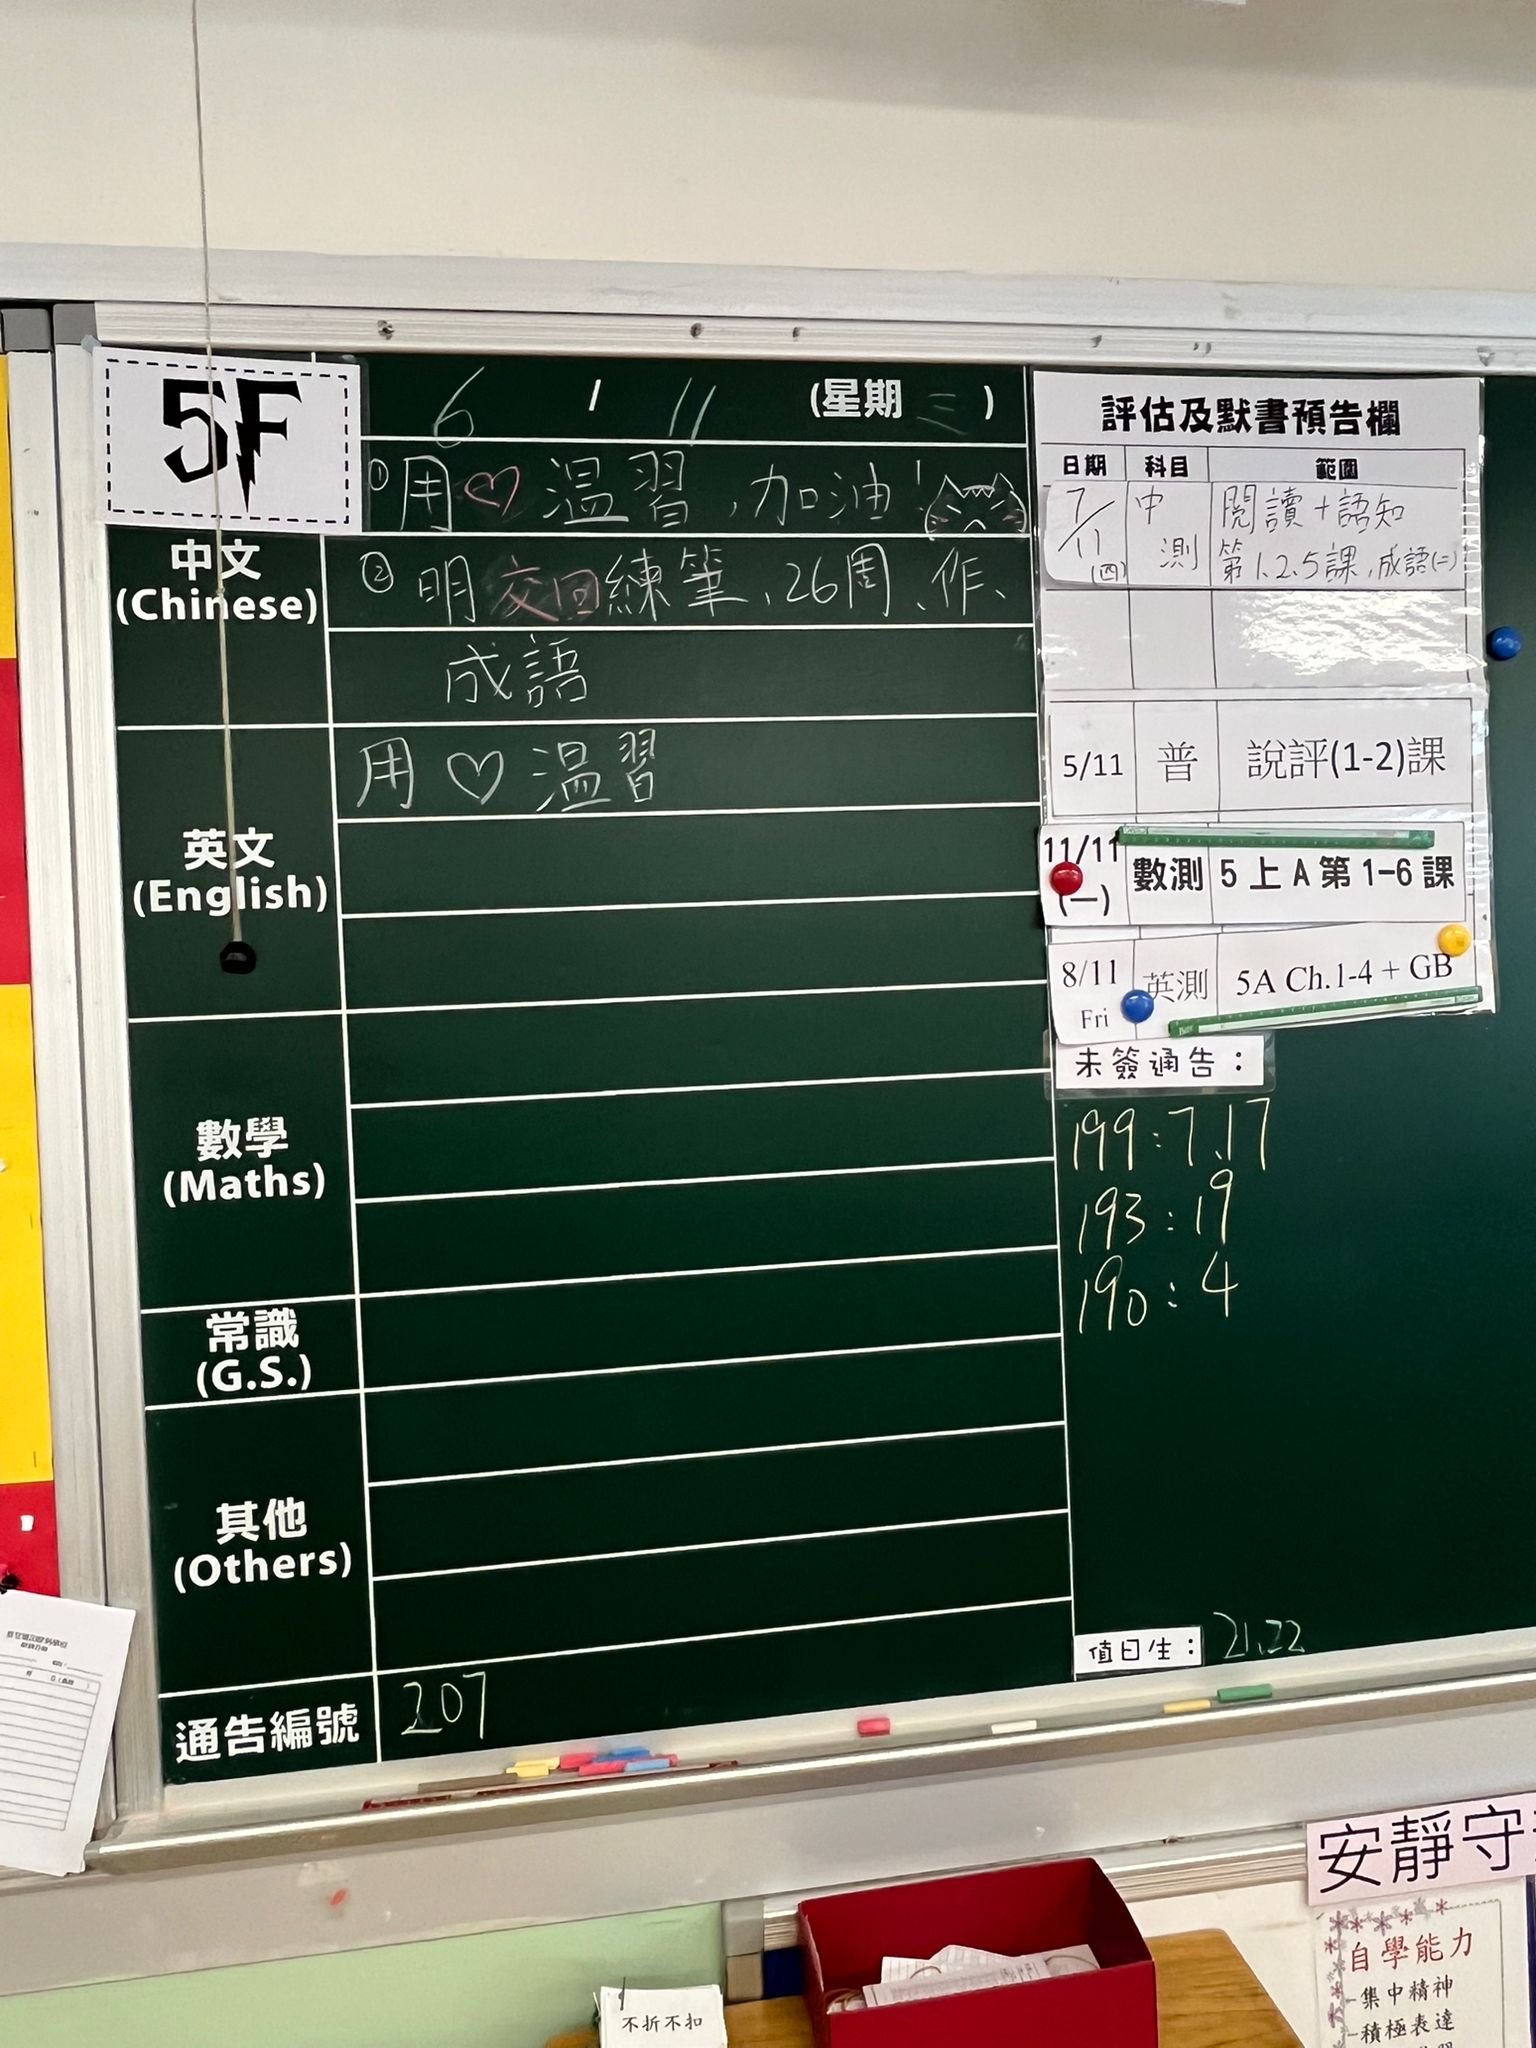 5F
6 / 11 (星期三)
①用♡溫習,加油!
中文
(Chinese)
②明交回練筆、26周、作、
成語
英文
(English)
用♡溫習
數學
(Maths)
常識
(G.S.)
其他
(Others)
通告編號
207
評估及默書預告欄
日期 科目 範圍
7/11 (四) 中測 閱讀+語知
第1.2.5課,成語(二)
5/11 普 說評(1-2)課
11/11 (一) 數測 5上A第1-6課
8/11 Fri 英測 5A Ch.1-4 + GB
未簽通告:
199:7.17
193:19
190:4
值日生: 21.22
安靜守
自學能力
-集中精神
-積極表達
不折不扣